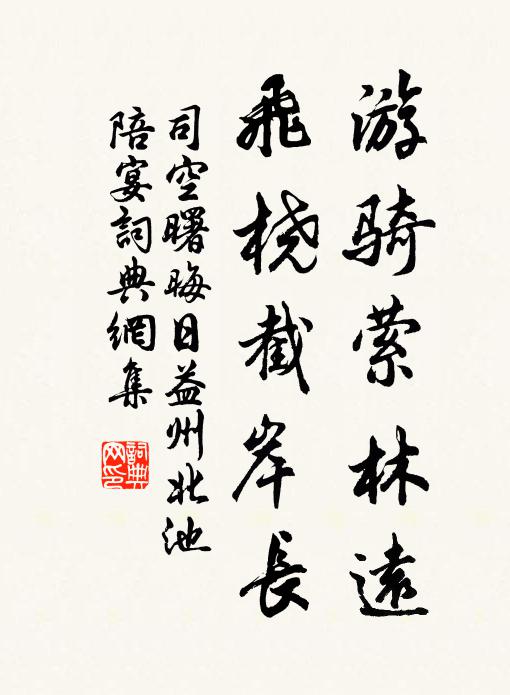 游骑萦林遠
飛桡截岸長
司空曙晦日益州北池
陪宴詞典網集
詞典
网印